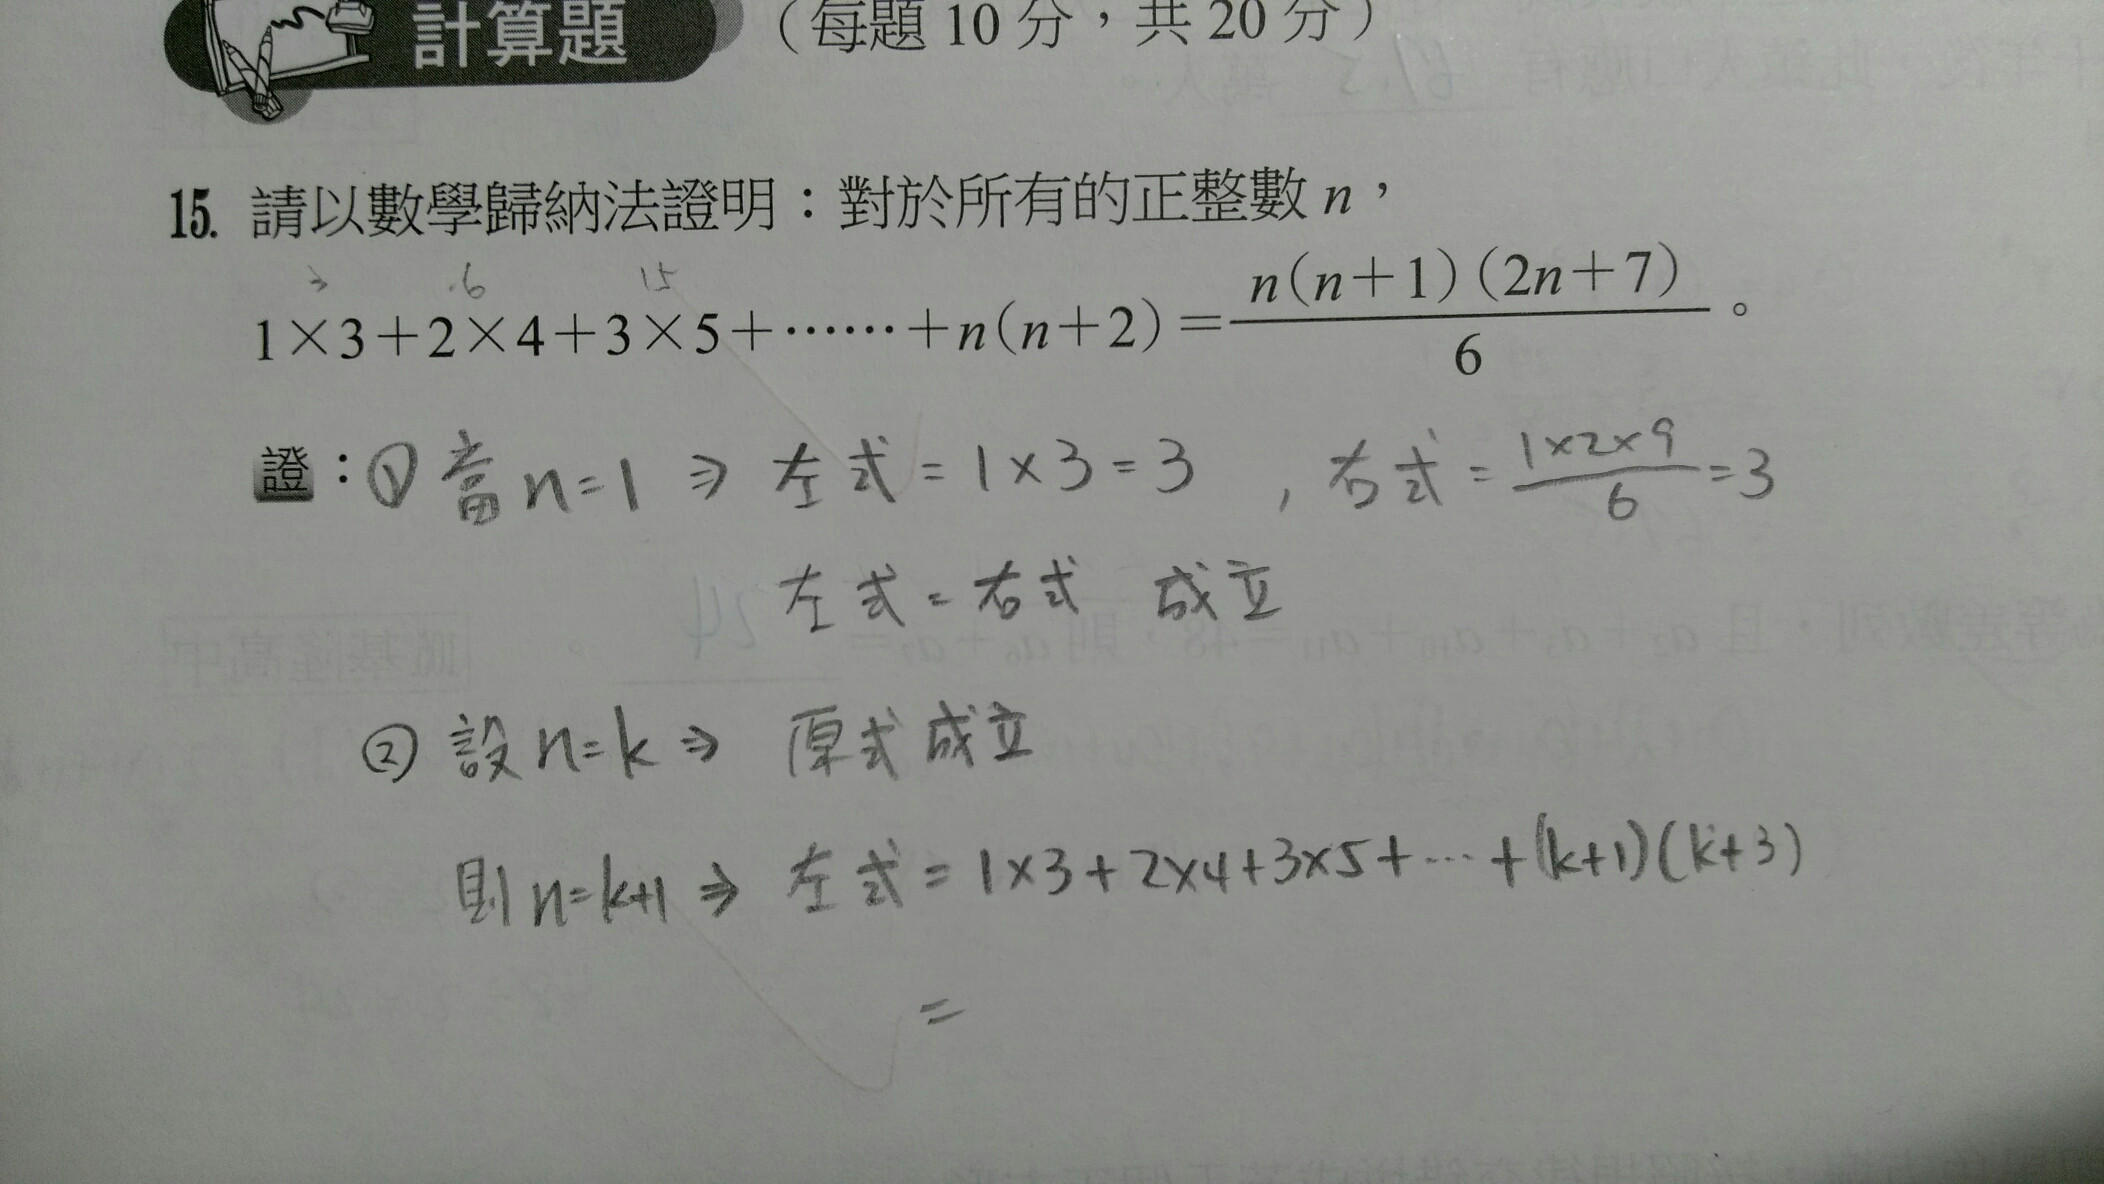 計算題 （每題 10 分，共 20 分）
15. 請以數學歸納法證明：對於所有的正整數 n，
3 6 15
1×3+2×4+3×5+……+n(n+2)=n(n+1)(2n+7)/6。
證：① 當 n=1 ⇒ 左式=1×3=3 , 右式=1×2×9/6=3
左式=右式 成立
② 設 n=k ⇒ 原式成立
則 n=k+1 ⇒ 左式=1×3+2×4+3×5+…+(k+1)(k+3)
=